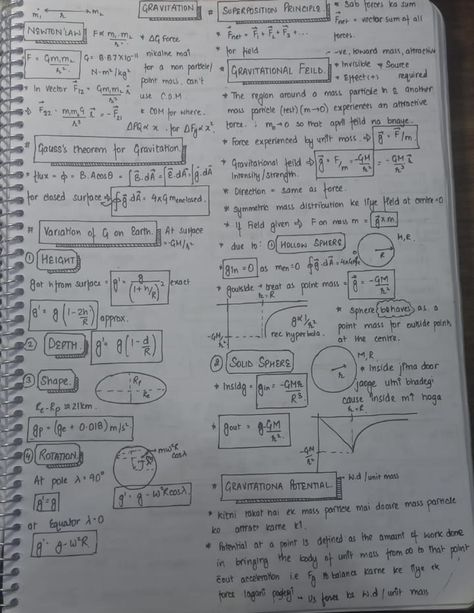 GRAVITATION
NEWTON LAW
F ∝ m₁m₂ / r²
F = Gm₁m₂ / r²
G = 6.67×10⁻¹¹ N-m²/kg²
* In Vector F⃗₁₂ = Gm₁m₂ / r² r̂
* ΔG Force nikalne mai
for a non particle/
point mass, can't
use C.O.M
* COM for where.
ΔFg ∝ x, for ΔFg ∝ x².
* Gauss's theorem for Gravitation.
* flux = ϕ = B.A cosθ = ∫B⃗.dA⃗ = ∫E⃗.dA⃗ = ∫g⃗.dA⃗
for closed surface → ∮g⃗.dA⃗ = 4πG m enclosed.
* Variation of G on Earth. At surface = GM/R²
① HEIGHT
g at h from surface = g' = g / (1+h/R)² exact
g' = g(1-2h/R) approx.
② DEPTH. g' = g(1-d/R)
③ Shape.
Rp
Re
Re-Rp = 21km.
gp = (ge + 0.018) m/s².
④ ROTATION.
mω²R cosλ
At pole λ = 90°
g' = g
g' = g - ω²R cos²λ
at Equator λ = 0
g' = g - ω²R
* SUPERPOSITION PRINCIPLE
* F⃗net = F⃗₁ + F⃗₂ + F⃗₃ + ...
* for field
* Sab forces ka sum
F⃗net = vector sum of all
forces.
-ve, toward mass, attractive
* GRAVITATIONAL FEILD.
* Invisible * Source
* Effect(+) required
* The region around a mass particle in & another
mass particle (test) (m→0) experiences an attractive
force. ∴ m₀→0 so that apni feild na bnaye.
* Force experienced by unit mass. ⇒ g⃗ = F⃗/m
* Gravitational feild Intensity/strength. ⇒ g⃗ = F/m = -GM/r² = -GM/r² r̂
* Direction = same as force.
* symmetric mass distribution ke liye field at centre = 0
* If Field given ⇒ F on mass m = g⃗ x m
* due to: ① HOLLOW SPHERE
M, R.
* gin = 0 as men = 0 ∮g⃗.dA⃗ = 4πG
* goutside → treat as point mass = g⃗ = -GM/r²
r = R
-GM/R²
g ∝ 1/r²
rec hyperbola.
* sphere behaves as a
point mass for outside point
at the centre.
② SOLID SPHERE
M, R
* Inside jitna door
jaoge utni bhadegi
cause inside m↑ hoga
* Inside = gin = -GMr / R³
* gout = -GM / r²
r = R
-GM/R²
* GRAVITATIONAL POTENTIAL
→ W.d/unit mass
* Kitni takat hai ek mass particle mai doosre mass particle
ko attract karne ki.
* Potential at a point is defined as the amount of work done
in bringing the body of unit mass from ∞ to that point
without acceleration i.e Fg ko balance karne ke liye ek
force lagani padegi → us force ka W.d/unit mass